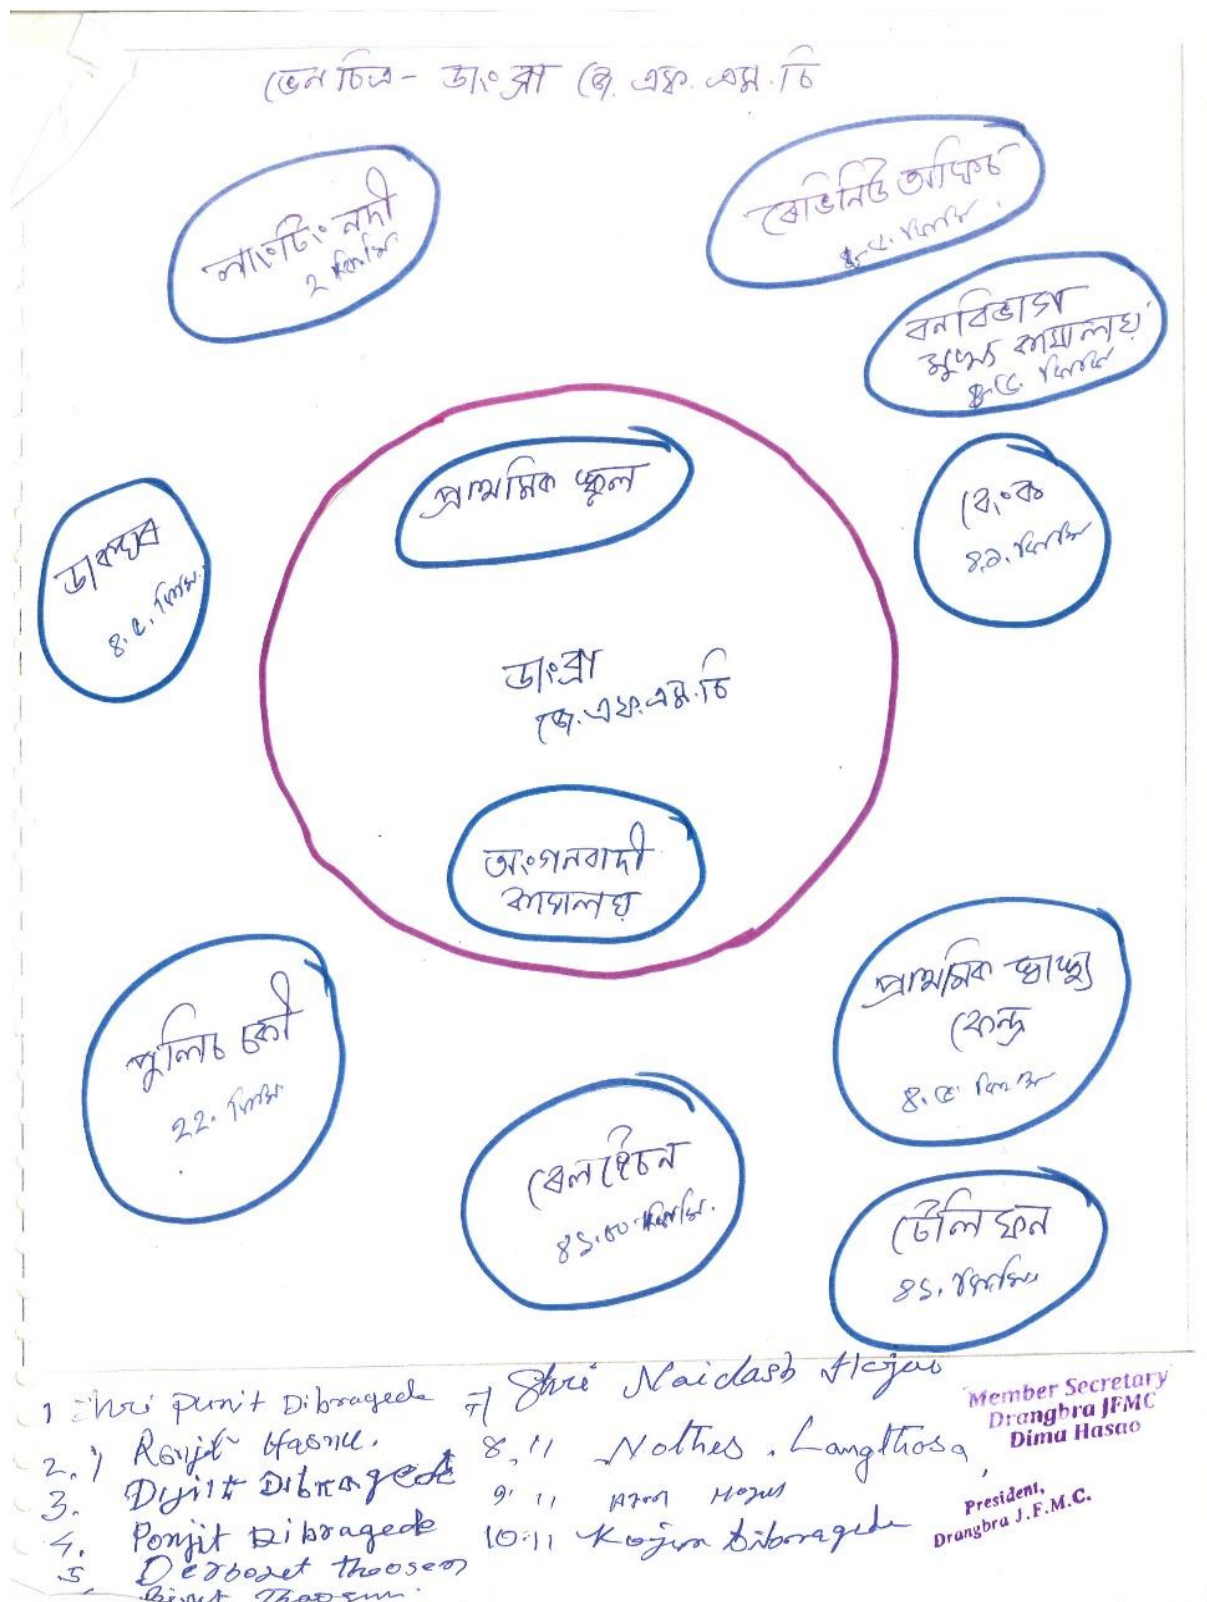 ভেনচিত্ৰ - ডাংব্ৰা জে. এফ. এম. চি
লাংটিং নদী
2 কিমি
ৰেভিনিউ অফিচ
৪.৫. কিমি.
বনবিভাগ
মুখ্য কাৰ্যালয়
৪.৫. কিমি
প্ৰাথমিক স্কুল
বেংক
কিমি
ডাকঘৰ
8.৫. কিমি.
ডাংব্ৰা
জে.এফ.এম.চি
অংগনবাদী
কাৰ্যালয়
প্ৰাথমিক স্বাস্থ্য
কেন্দ্ৰ
8.৫. কিমি
পুলিচ চকী
22. কিমি
ৰেল ষ্টেচন
কিমি.
টেলিফন
8১. কিমি.
1 Shri Punit Dibragede
2. " Ronjit Hasnu.
3. Dijit Dibragede
4. Ponjit Dibragede
5. Derbojet Thaosen
Thaosen.
7 Shri Naidash Hojai
8. " Nothes. Langthasa
9. "
10. " Kojen Dibragede
Member Secretary
Drangbra JFMC
Dima Hasao
President,
Drangbra J.F.M.C.